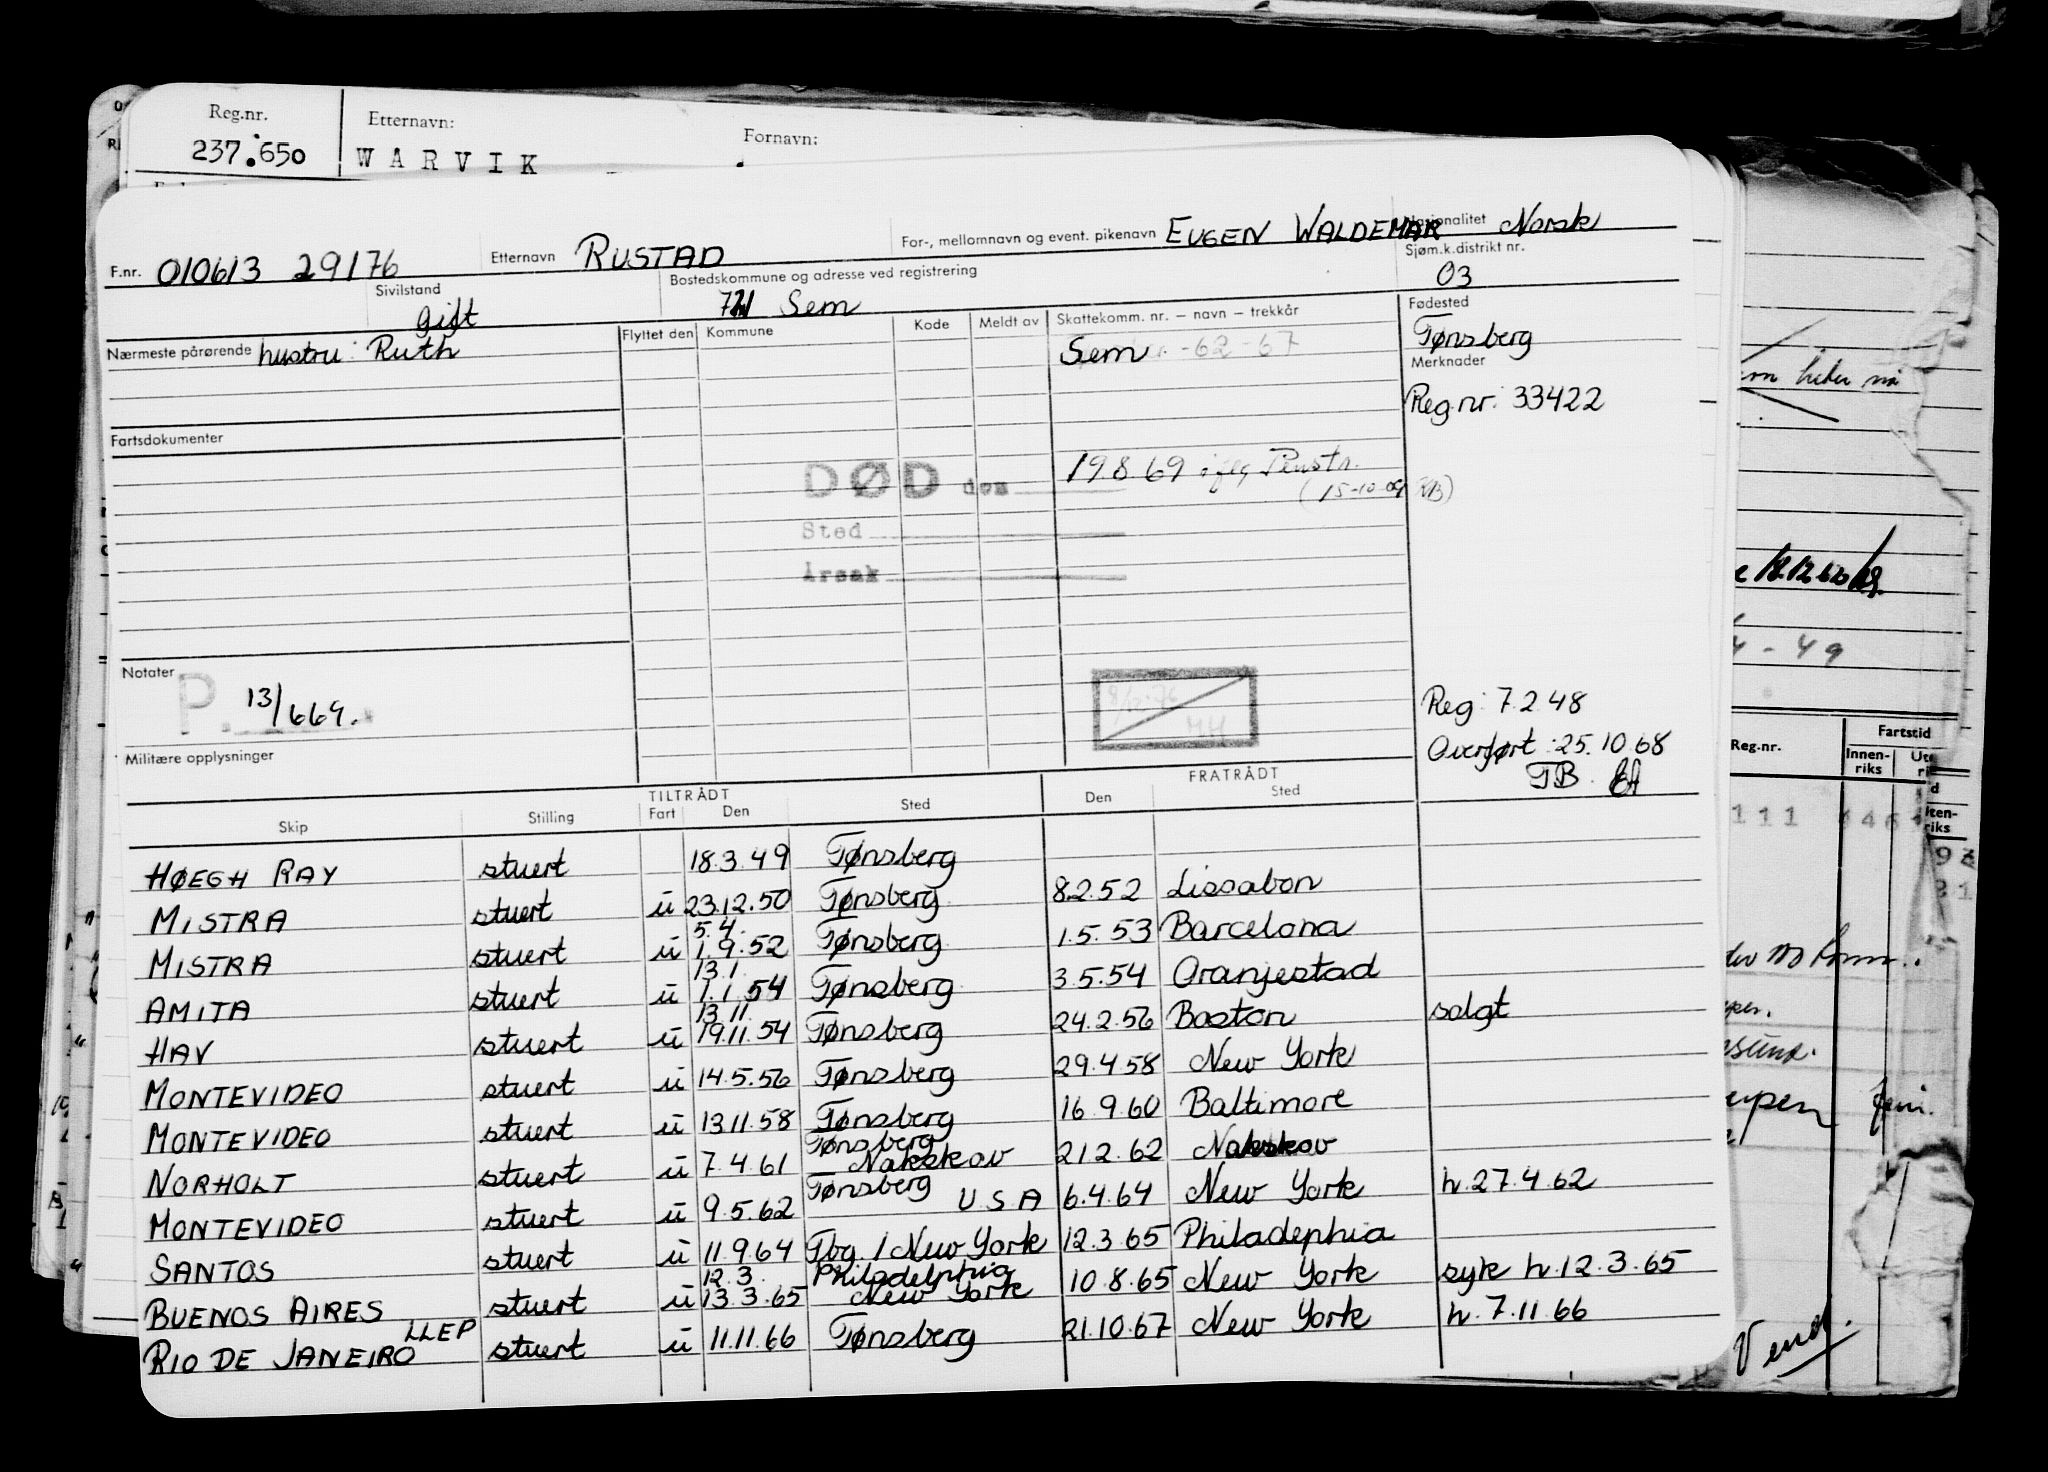 Reg.nr. Etternavn: Fornavn:
237.650 WARVIK
F.nr. 010613 29176 Etternavn RUSTAD For-, mellomnavn og event. pikenavn EUGEN WALDEMAR Nasjonalitet Norsk
Sivilstand gift Bostedskommune og adresse ved registrering Sem Sjøm.k.distrikt nr. 03
Nærmeste pårørende hustru: Ruth Flyttet den Kommune Kode Meldt av Skattekomm. nr. – navn – trekkår Fødested
Sem -62-67 Tønsberg
Merknader
Reg.nr: 33422
Fartsdokumenter
DØD den 19 8 69 iflg Penstr.
Sted
Årsak
Notater
P. 13/669.
Reg: 7.2.48
Militære opplysninger
Overført: 25.10.68
TB.
TILTRÅDT FRATRÅDT
Skip Stilling Fart Den Sted Den Sted
HØEGH RAY stuert 18.3.49 Tønsberg
MISTRA stuert u 23.12.50 Tønsberg 8.2.52 Lissabon
MISTRA stuert u 5.4. 1.9.52 Tønsberg 1.5.53 Barcelona
AMITA stuert u 13.1. 1.1.54 Tønsberg 3.5.54 Oranjestad
HAV stuert u 13.11. 19.11.54 Tønsberg 24.2.56 Boston solgt
MONTEVIDEO stuert u 14.5.56 Tønsberg 29.4.58 New York
MONTEVIDEO stuert u 13.11.58 Tønsberg 16.9.60 Baltimore
NORHOLT stuert u 7.4.61 Tønsberg Nakskov 21.2.62 Nakskov
MONTEVIDEO stuert u 9.5.62 Tønsberg USA 6.4.64 New York h.27.4.62
SANTOS stuert u 11.9.64 Tbg. / New York 12.3.65 Philadephia
BUENOS AIRES stuert u 12.3. 13.3.65 Philadelphia New York 10.8.65 New York syk h.12.3.65
RIO DE JANEIRO LLEP stuert u 11.11.66 Tønsberg 21.10.67 New York h.7.11.66
4 - 49
Reg.nr. Fartstid
Innen-
riks
111
Vend.